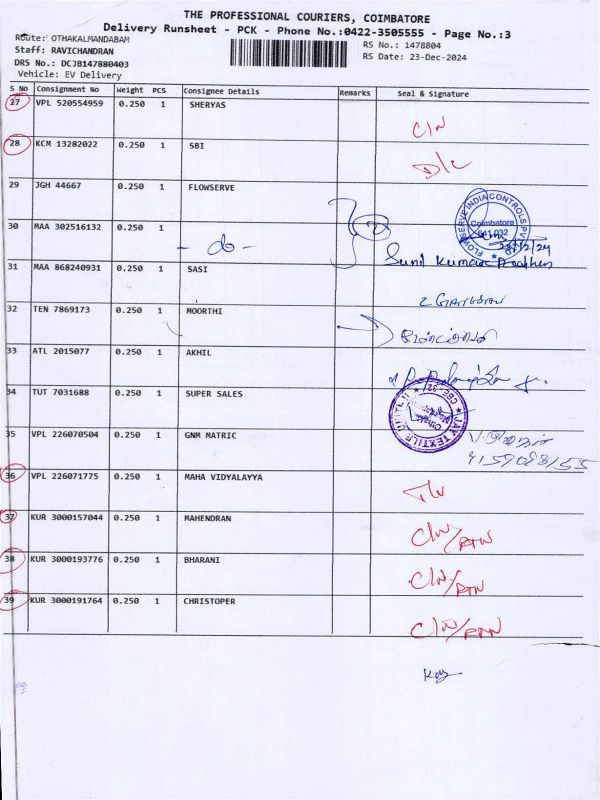 THE PROFESSIONAL COURIERS, COIMBATORE
Delivery Runsheet - PCK - Phone No.:0422-3505555 - Page No.:3
Route: OTHAKALMANDABAM
RS No.: 1478804
Staff: RAVICHANDRAN
RS Date: 23-Dec-2024
DRS No.: DCJB147880403
Vehicle: EV Delivery
S No Consignment No Weight PCS Consignee Details Remarks Seal & Signature
27 VPL 520554959 0.250 1 SHERYAS
28 KCM 13282022 0.250 1 SBI D/C
29 JGH 44667 0.250 1 FLOWSERVE
FLOWSERVE INDIA CONTROLS PVT
Coimbatore
641 032
30 MAA 302516132 0.250 1 - do -
Sunil Kumar
31 MAA 868240931 0.250 1 SASI
32 TEN 7869173 0.250 1 MOORTHI
33 ATL 2015077 0.250 1 AKHIL
34 TUT 7031688 0.250 1 SUPER SALES
JAY TEXTILE
35 VPL 226070504 0.250 1 GNM MATRIC
36 VPL 226071775 0.250 1 MAHA VIDYALAYYA
37 KUR 3000157044 0.250 1 MAHENDRAN C/N/RTN
38 KUR 3000193776 0.250 1 BHARANI C/N/RTN
39 KUR 3000191764 0.250 1 CHRISTOPER C/N/RTN